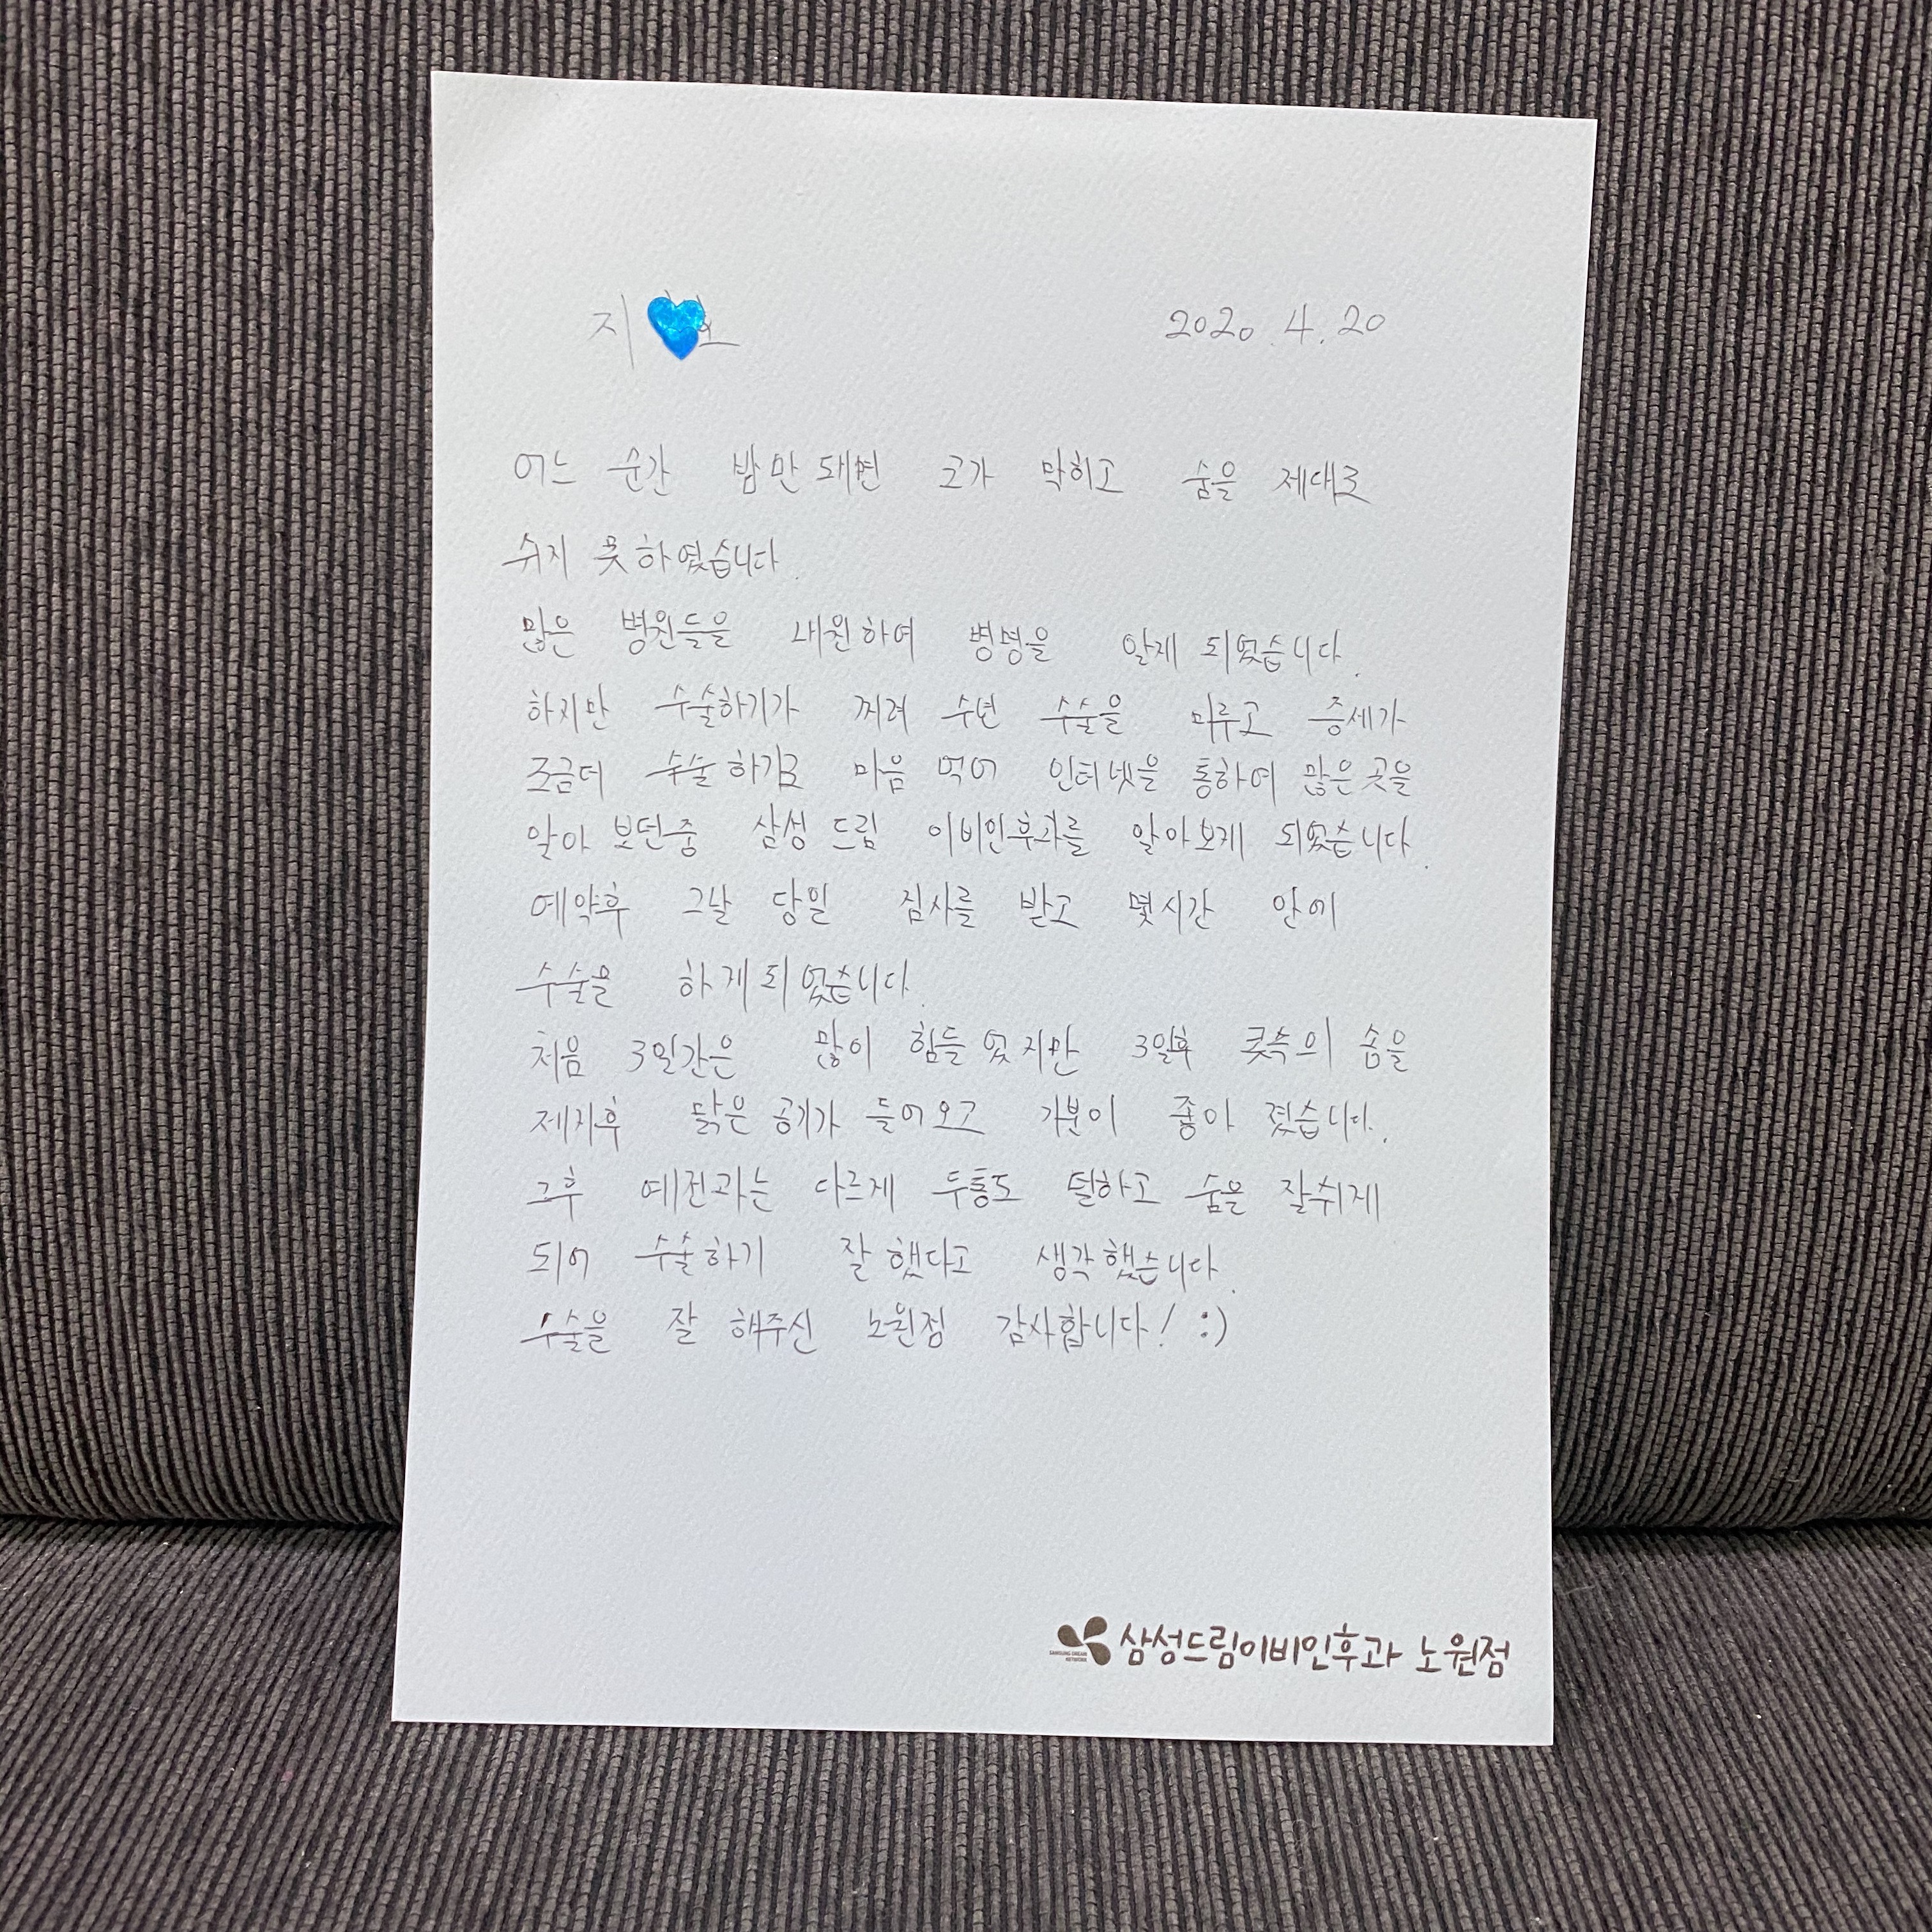 지 2020. 4. 20
어느 순간 밤만 돼면 코가 막히고 숨을 제대로
쉬지 못하였습니다.
많은 병원들을 내원하여 병명을 알게 되었습니다.
하지만 수술하기가 꺼려 수년 수술을 미루고 증세가
조금더 수술하기로 마음 먹어 인터넷을 통하여 많은 곳을
알아 보던중 삼성 드림 이비인후과를 알아보게 되었습니다.
예약후 그날 당일 검사를 받고 몇시간 안에
수술을 하게되었습니다.
처음 3일간은 많이 힘들었지만 3일후 콧속의 솜을
제거후 맑은 공기가 들어오고 기분이 좋아 졌습니다.
그후 예전과는 다르게 두통도 덜하고 숨을 잘쉬게
되어 수술하기 잘했다고 생각했습니다.
수술을 잘 해주신 노원점 감사합니다! :)
삼성드림이비인후과 노원점
SAMSUNG DREAM
NETWORK